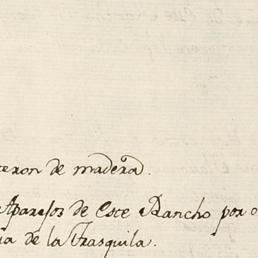 teron de madera.
Aparejos de Este Rancho por o
ia de la Trasquila.